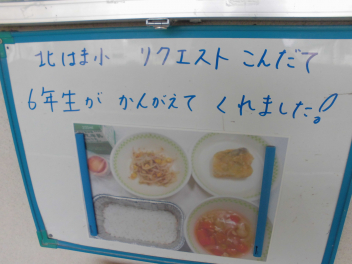 北はま小 リクエスト こんだて
6年生が かんがえて くれました!